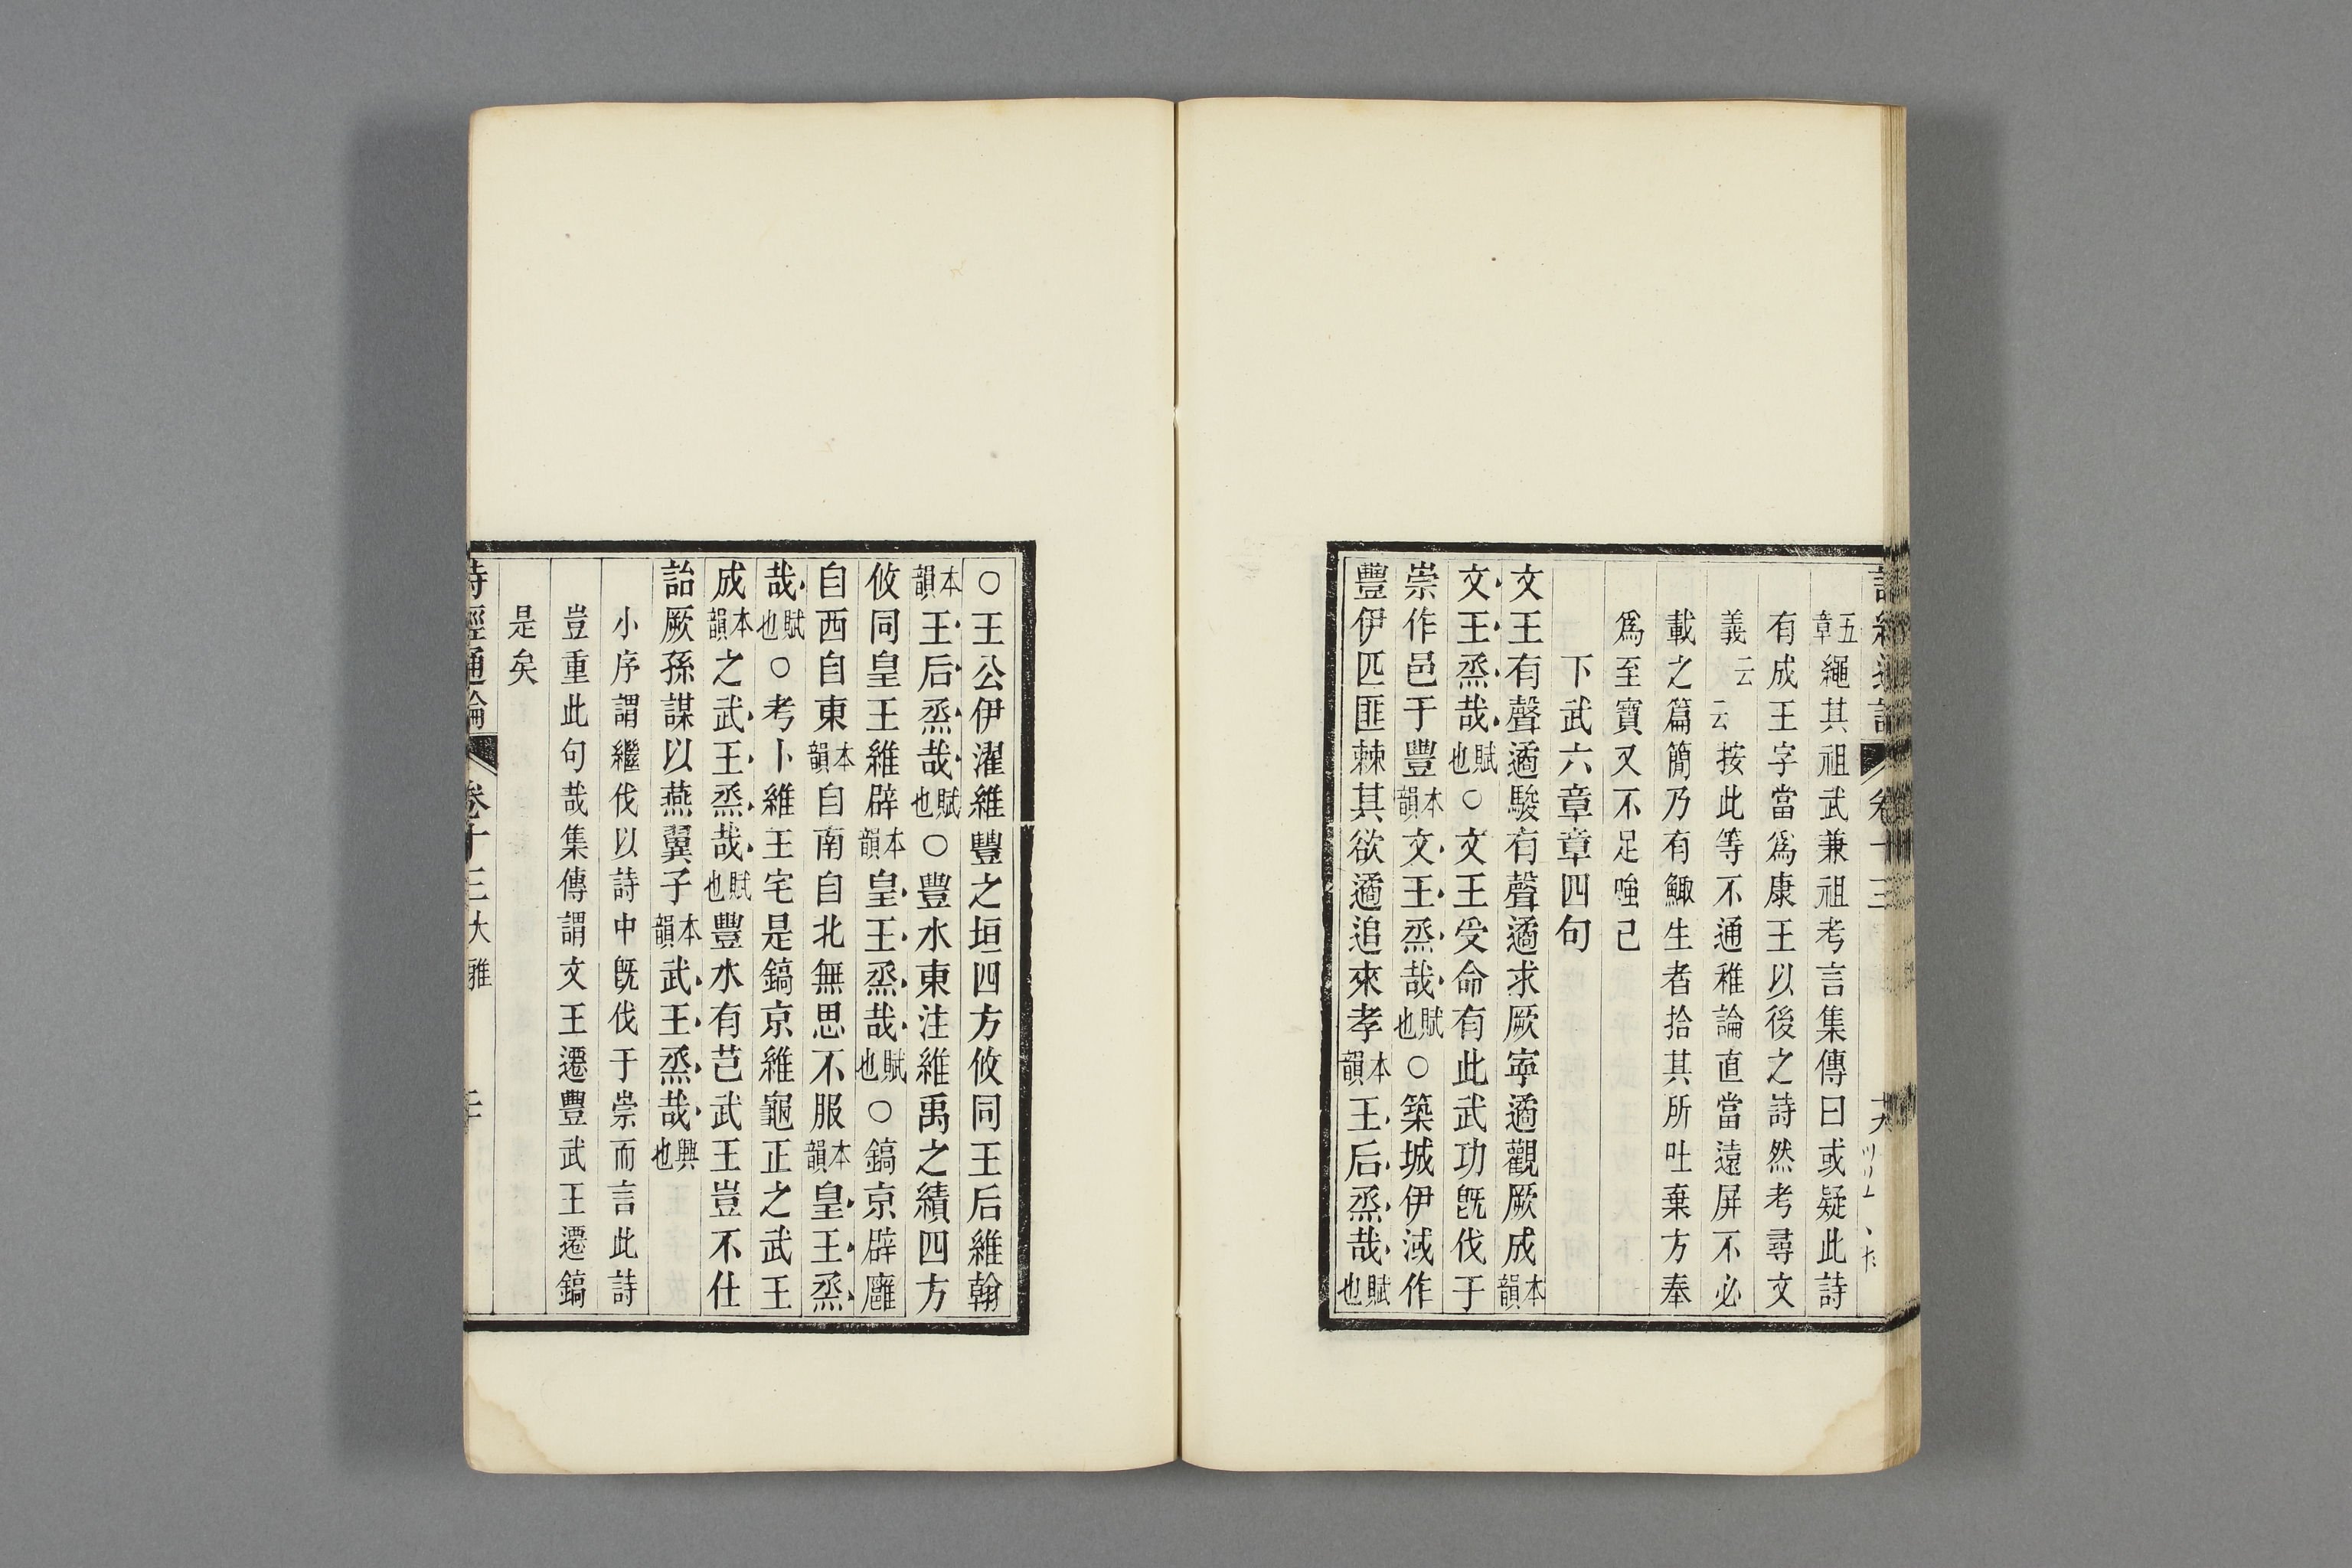 詩經通論 卷十三 
五章繩其祖武兼祖考言集傳曰或疑此詩
有成王字當爲康王以後之詩然考尋文
義云云按此等不通稚論直當遠屏不必
載之篇簡乃有鯫生者拾其所吐棄方奉
爲至寶又不足嗤已
下武六章章四句
文王有聲遹駿有聲遹求厥寧遹觀厥成本韻
文王烝哉賦也○文王受命有此武功旣伐于
崇作邑于豐本韻文王烝哉賦也○築城伊淢作
豐伊匹匪棘其欲遹追來孝本韻王后烝哉賦也
○王公伊濯維豐之垣四方攸同王后維翰
本韻王后烝哉賦也○豐水東注維禹之績四方
攸同皇王維辟本韻皇王烝哉賦也○鎬京辟廱
自西自東本韻自南自北無思不服本韻皇王烝
哉賦也○考卜維王宅是鎬京維龜正之武王
成本韻之武王烝哉賦也豐水有芑武王豈不仕
詒厥孫謀以燕翼子本韻武王烝哉興也
小序謂繼伐以詩中旣伐于崇而言此詩
豈重此句哉集傳謂文王遷豐武王遷鎬
是矣
詩經通論 卷十三 大雅 二十